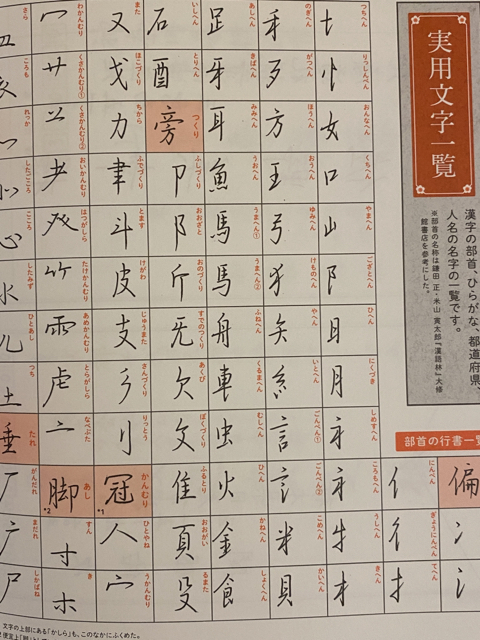 実用文字一覧
漢字の部首、ひらがな、都道府県、
人名の名字の一覧です。
※部首の名称は鎌田 正・米山 寅太郎『漢語林』大修
館書店を参考にした。
部首の行書一覧
偏
冫
氵
亻 にんべん
彳 ぎょうにんべん
扌 てへん
土 つちへん
忄 りっしんべん
女 おんなへん
口 くちへん
山 やまへん
阝 こざとへん
日
月 にくづき
礻 しめすへん
衤 ころもへん
牛 うしへん
木 きへん
禾
歹 がつへん
方 ほうへん
王 おうへん
弓 ゆみへん
犭 けものへん
矢 やへん
糸 いとへん
言 ごんべん①
訁 ごんべん②
米 こめへん
貝 かいへん
足 あしへん
牙 きばへん
耳 みみへん
魚 うおへん
馬 うまへん①
馬 うまへん②
舟 ふねへん
車 くるまへん
虫 むしへん
火 ひへん
金 かねへん
食 しょくへん
石 いしへん
酉 とりへん
旁 つくり
卩 ふしづくり
阝 おおざと
斤 おのづくり
旡 すでのつくり
欠 あくび
攵 ぼくづくり
隹 ふるとり
頁 おおがい
殳 るまた
又 また
戈 ほこづくり
力 ちから
聿 ふでづくり
斗 とます
皮 けがわ
支 じゅうまた
彡 さんづくり
刂 りっとう
冠 かんむり *1
人 ひとやね
宀 うかんむり
冖 わかんむり
艹 くさかんむり①
䒑 くさかんむり②
耂 おいかんむり
癶 はつがしら
竹 たけかんむり
雨 あめかんむり
虍 とらがしら
亠 なべぶた
脚 あし *2
寸 すん
木 き
皿 さら
衣 ころも
灬 れっか
㣺 したごころ
心 こころ
氺 したみず
儿 ひとあし
土 つち
垂 たれ
厂 がんだれ
广 まだれ
尸 しかばね
文字の上部にある「かしら」も、このなかにふくめた。